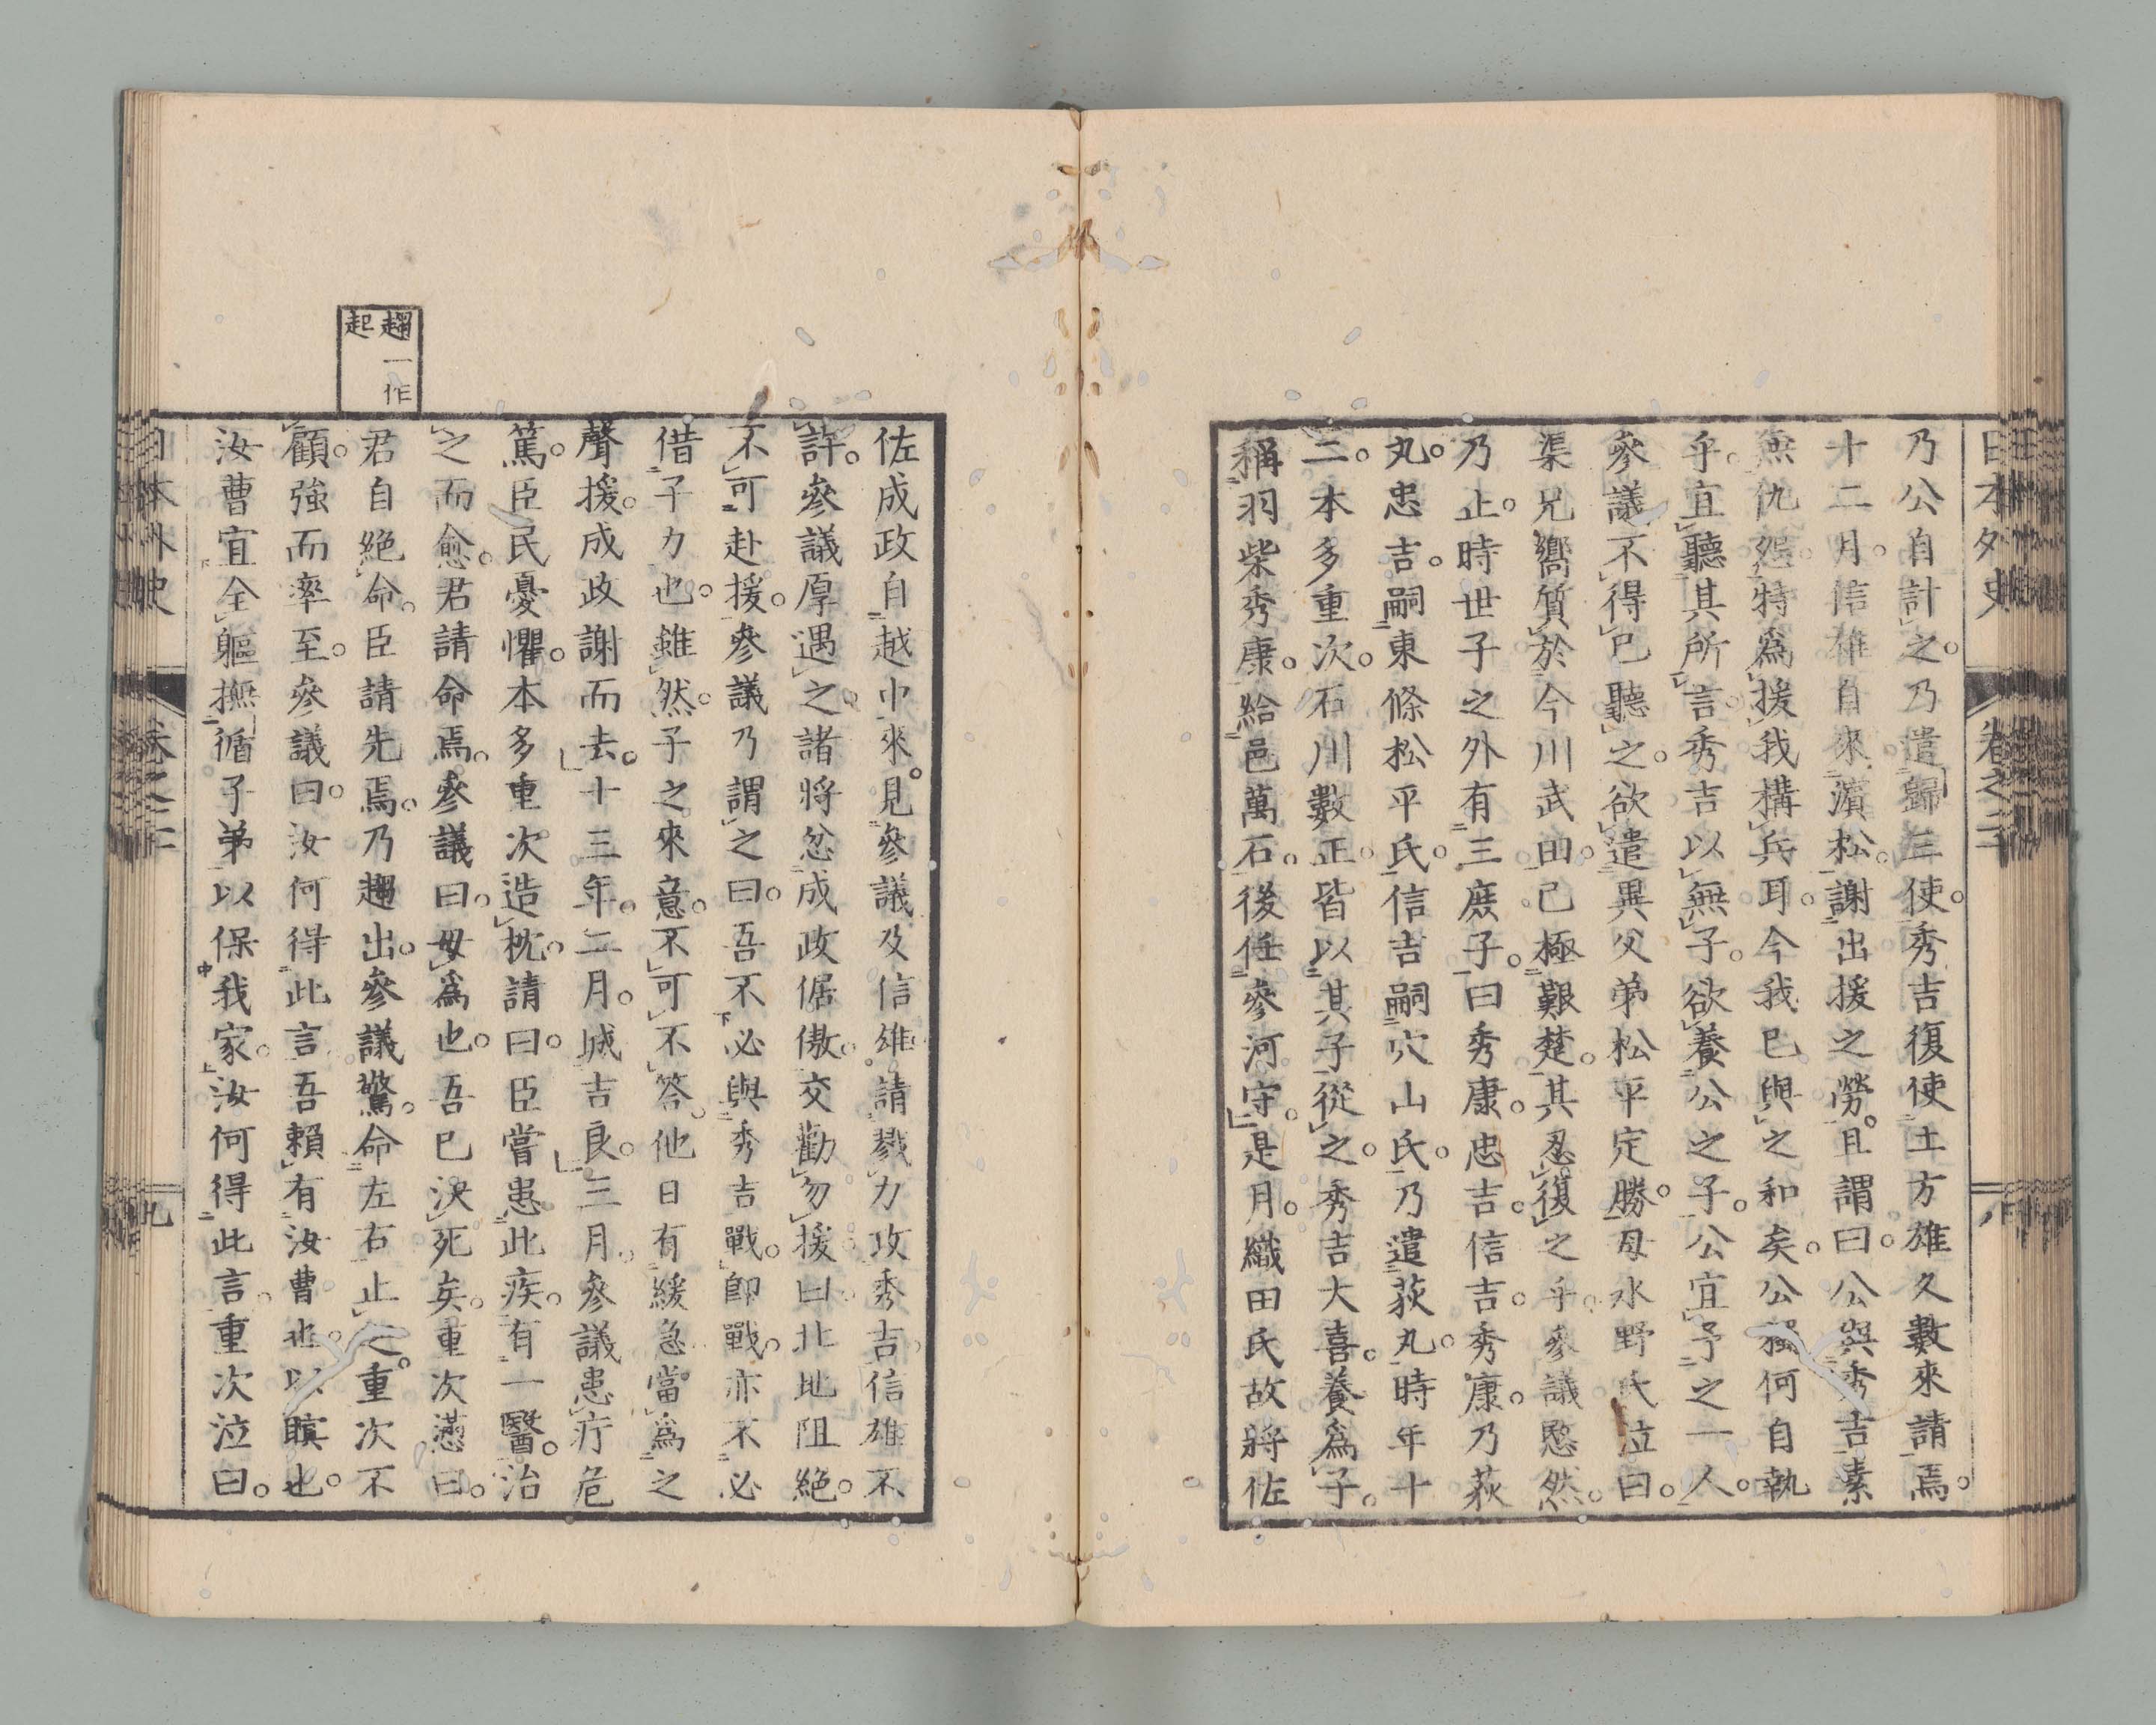 日本外史
卷之二
乃公自計之。乃遣歸三使。秀吉復使土方雄久數來請焉。
十二月。信雄自來濵松。謝出援之勞。且謂曰。公與秀吉素
無仇怨。特爲援我構兵耳。今我已與之和矣。公獨何自執
乎。宜聽其所言。秀吉以無子。欲養公之子。公宜予之一人。
參議不得已聽之。欲遣異父弟松平定勝。母水野氏泣曰。
渠兄嚮質於今川武田。已極艱楚。其忍復之乎。參議愍然。
乃止。時世子之外有三庶子。曰秀康。忠吉。信吉。秀康。乃荻
丸。忠吉。嗣東條松平氏。信吉嗣穴山氏。乃遣荻丸。時年十
二。本多重次。石川數正。皆以其子從之。秀吉大喜。養爲子。
稱羽柴秀康。給邑萬石。後任參河守。是月。織田氏故將佐
佐成政自越中來。見參議及信雄。請戮力攻秀吉信雄不
許。參議厚遇之。諸將忿成政倨傲。交勸勿援曰。北地阻絶。
不可赴援。參議乃謂之曰。吾不必與秀吉戰。卽戰。亦不必
借子力也。雖然。子之來意。不可不答。他日有緩急。當爲之
聲援。成政謝而去。十三年。二月。城吉良。三月。參議患疔危
篤。臣民憂懼。本多重次造枕。請曰。臣嘗患此疾。有一醫。治
之而愈。君請命焉。參議曰。母爲也。吾已決死矣。重次懣曰。
君自絶命。臣請先焉。乃趨出。參議驚。命左右止之。重次不
顧。強而率至。參議曰。汝何得此言吾賴有汝曹也。以瞑也。
汝曹宜全軀撫循子弟以保我家。汝何得此言。重次泣曰。
趨一作
起
日本外史
九